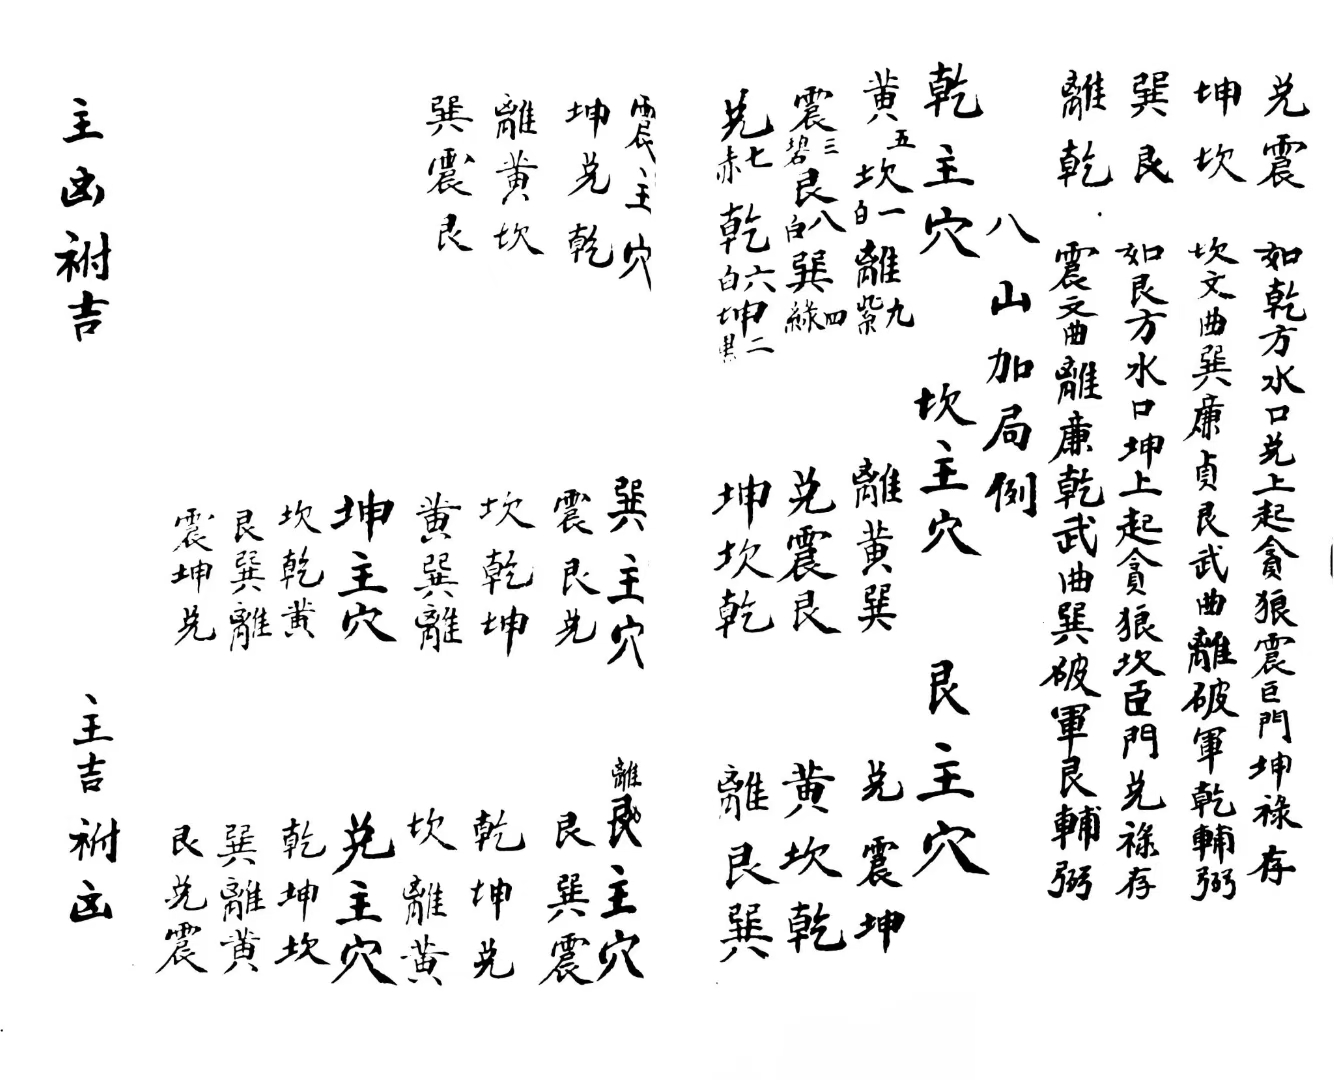 兊震　如乾方水口兊上起貪狼震巨門坤祿存
坤坎　坎文曲巽廉貞艮武曲離破軍乾輔弼
巽艮　如艮方水口坤上起貪狼坎臣門兊祿存
離乾　震文曲離廉乾武曲巽破軍艮輔弼
八山加局例
乾主穴　坎主穴　艮主穴
黄五坎一白離九紫　離黄巽　兊震坤
震三碧艮八白巽四綠　兊震艮　黄坎乾
兊七赤乾六白坤二黑　坤坎乾　離艮巽
震主穴　巽主穴　離艮主穴
坤兊乾　震艮兊　艮巽震
離黄坎　坎乾坤　乾坤兊
巽震艮　黄巽離　坎離黄
坤主穴　兊主穴
坎乾黄　乾坤坎
艮巽離　巽離黄
震坤兊　艮兊震
主凶祔吉　主吉祔凶